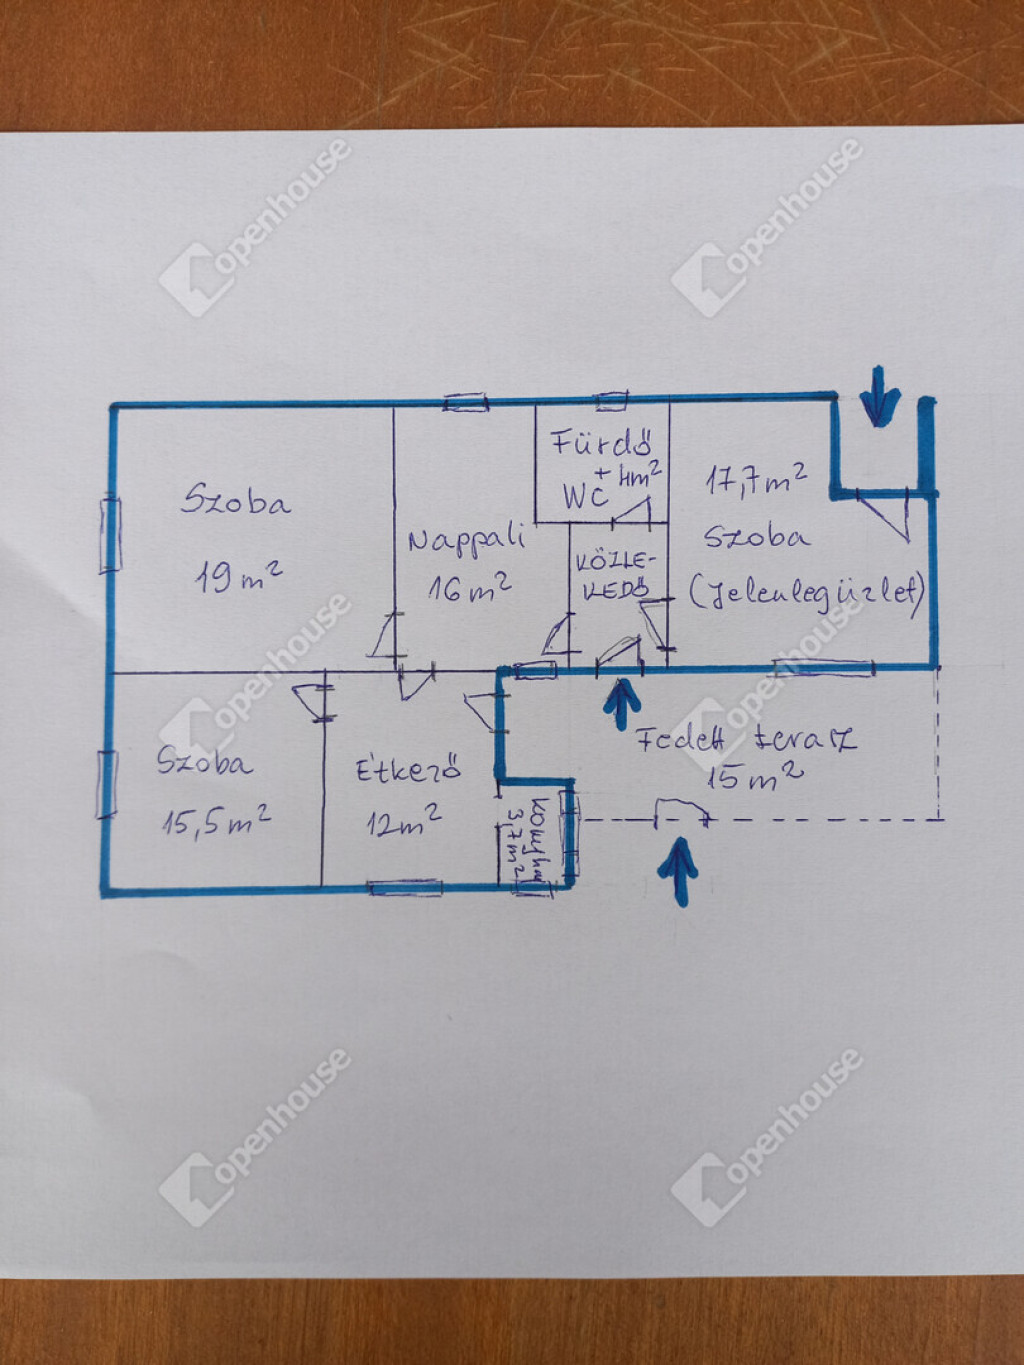 openhouse
openhouse
Szoba
19 m²
Nappali
16 m²
Fürdő
+ 4m²
WC
KÖZLE-
KEDŐ
17,7 m²
Szoba
(Jelenleg üzlet)
openhouse
openhouse
Szoba
15,5 m²
Étkező
12 m²
Konyha
3,7 m²
Fedett terasz
15 m²
openhouse
openhouse